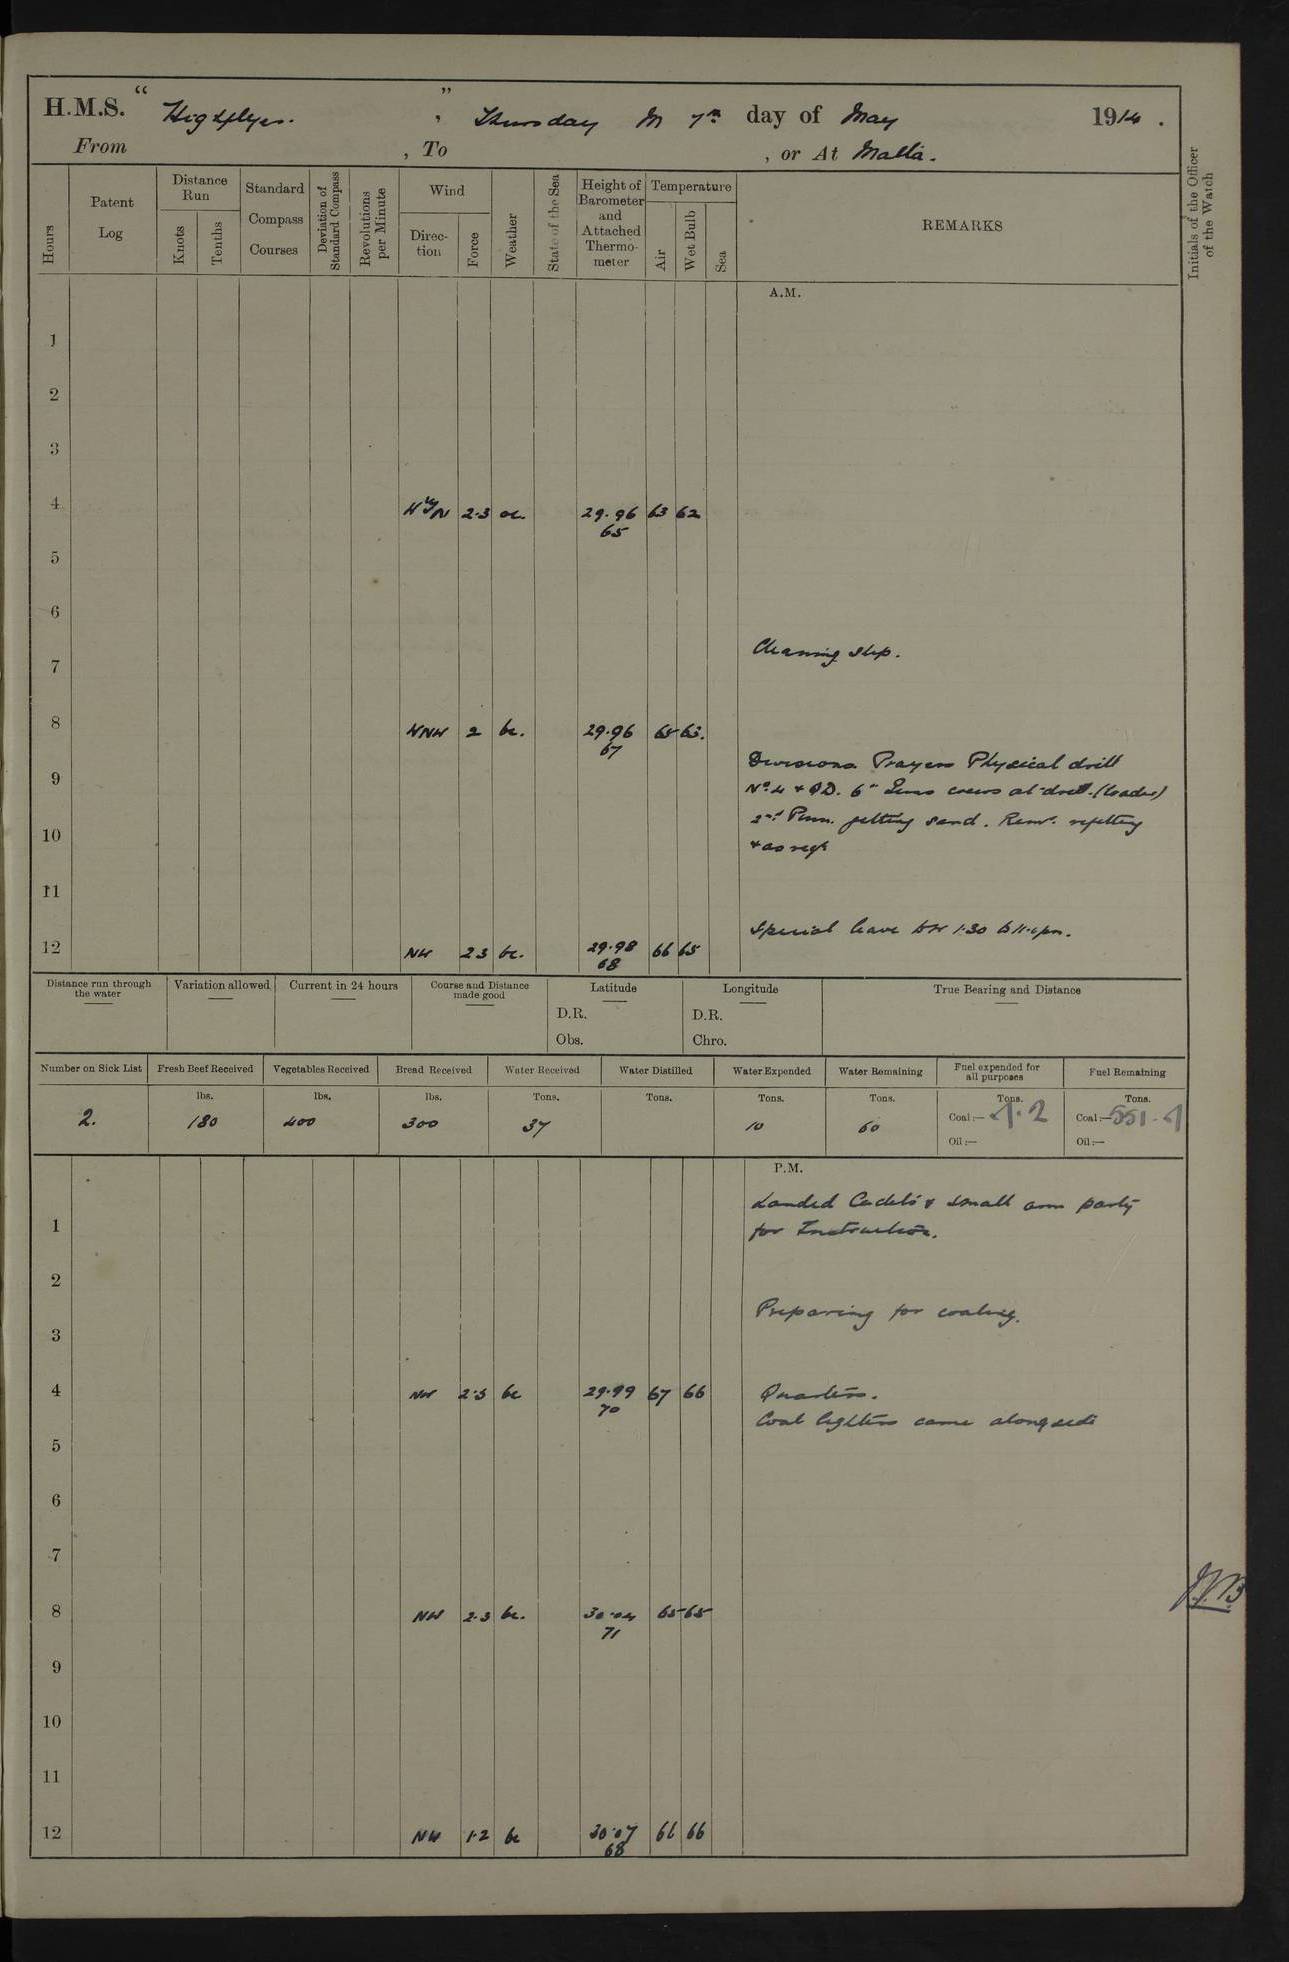 H.M.S. "Highflyer." , Thursday 7th day of May 1914.
From , To , or At Malta.
Hours Patent Log Distance Run Knots Tenths Standard Compass Courses Deviation of Standard Compass Revolutions per Minute Wind Direc-tion Force Weather State of the Sea Height of Barometer and Attached Thermo-meter Temperature Air Wet Bulb Sea REMARKS Initials of the Officer of the Watch
A.M.
1
2
3
4 2.3 29.96 63 62
65
5
6
7 Cleaning ship.
8 WNW 2 bc. 29.96 65 63.
67
Divisions Prayers Physical drill
9 No. 4 + QD. 6" Guns crews at drill. (loader)
2nd Pinn. getting sand. Remr. refitting
10
+ as reqd
11
Special leave 1.30 to 11.
12 NW 2.3 bc. 29.98 66 65
68
Distance run through the water Variation allowed Current in 24 hours Course and Distance made good Latitude Longitude True Bearing and Distance
D.R. D.R.
Obs. Chro.
Number on Sick List Fresh Beef Received Vegetables Received Bread Received Water Received Water Distilled Water Expended Water Remaining Fuel expended for all purposes Fuel Remaining
lbs. lbs. lbs. Tons. Tons. Tons. Tons. Tons. Tons.
2. 180 400 300 37 10 60 Coal:— 4.2 Coal:— 551.4
Oil:— Oil:—
P.M.
Landed Cadets & small arm party
1 for Instruction.
2
Preparing for coaling.
3
4 NW 2.3 bc 29.99 67 66 Quarters.
70
Coal lighters came alongside
5
6
7
8 NW 2.3 bc. 30.04 65 65
71
9
10
11
12 NW 1.2 bc 30.07 66 66
68